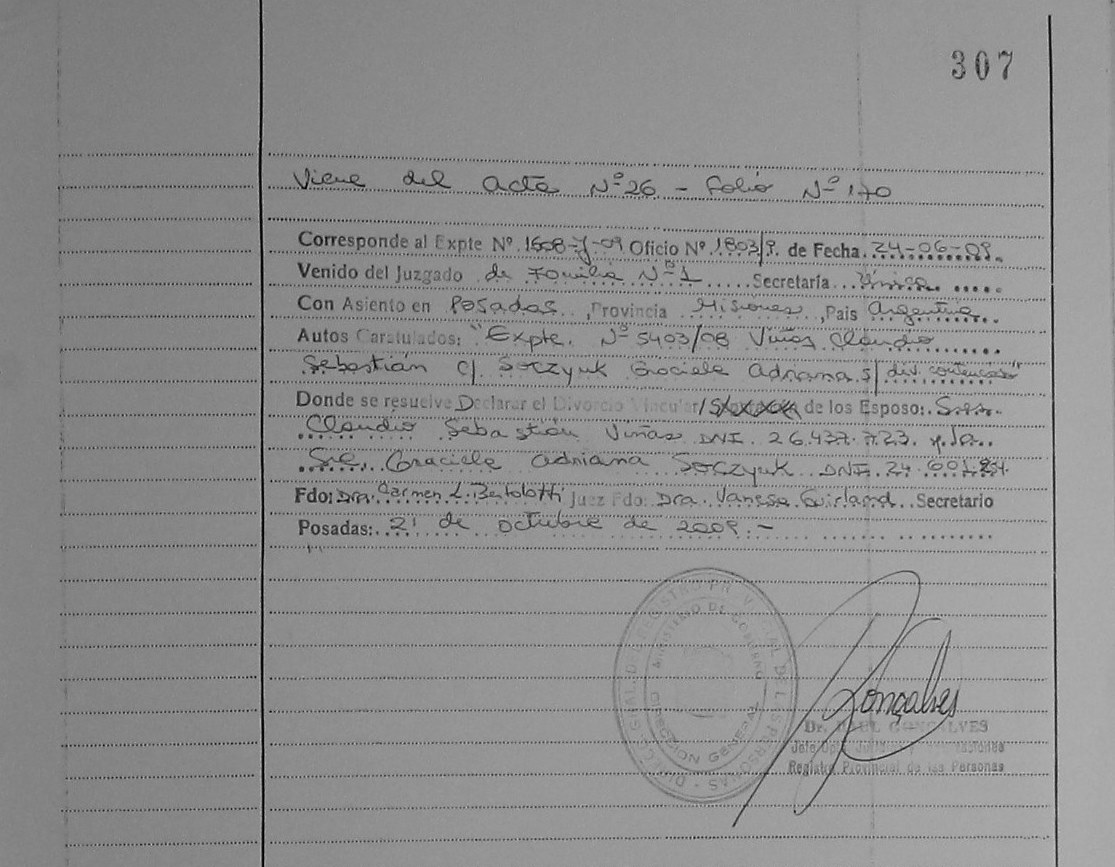 307
Viene del acta Nº 26 - Folio Nº 170
Corresponde al Expte Nº 1608-J-09 Oficio Nº 1803/9. de Fecha 24-06-09.
Venido del Juzgado de Familia Nº 1 Secretaría Única
Con Asiento en Posadas, Provincia Misiones, Pais Argentina
Autos Caratulados: "Expte. Nº 5403/08 Viñas Claudio
Sebastián c/ Soczyuk Graciela Adriana s/ div. contencioso"
Donde se resuelve Declarar el Divorcio Vincular/ de los Esposo: Sr.
Claudio Sebastián Viñas DNI. 26.437.723. y la
Sra. Graciela Adriana Soczyuk DNI. 24
Fdo: Dra. Carmen L. Bertolotti Juez Fdo: Dra. Vanesa Guirland Secretario
Posadas: 21 de octubre de 2009.-
DIRECC GRAL DEL REGISTRO PROVINCIAL DE LAS PERSONAS
MINISTERIO DE GOBIERNO
DIRECCION GENERAL
Gonçalves
Dr. RAUL GONÇALVES
Jefe Dpto.
Registro Provincial de las Personas